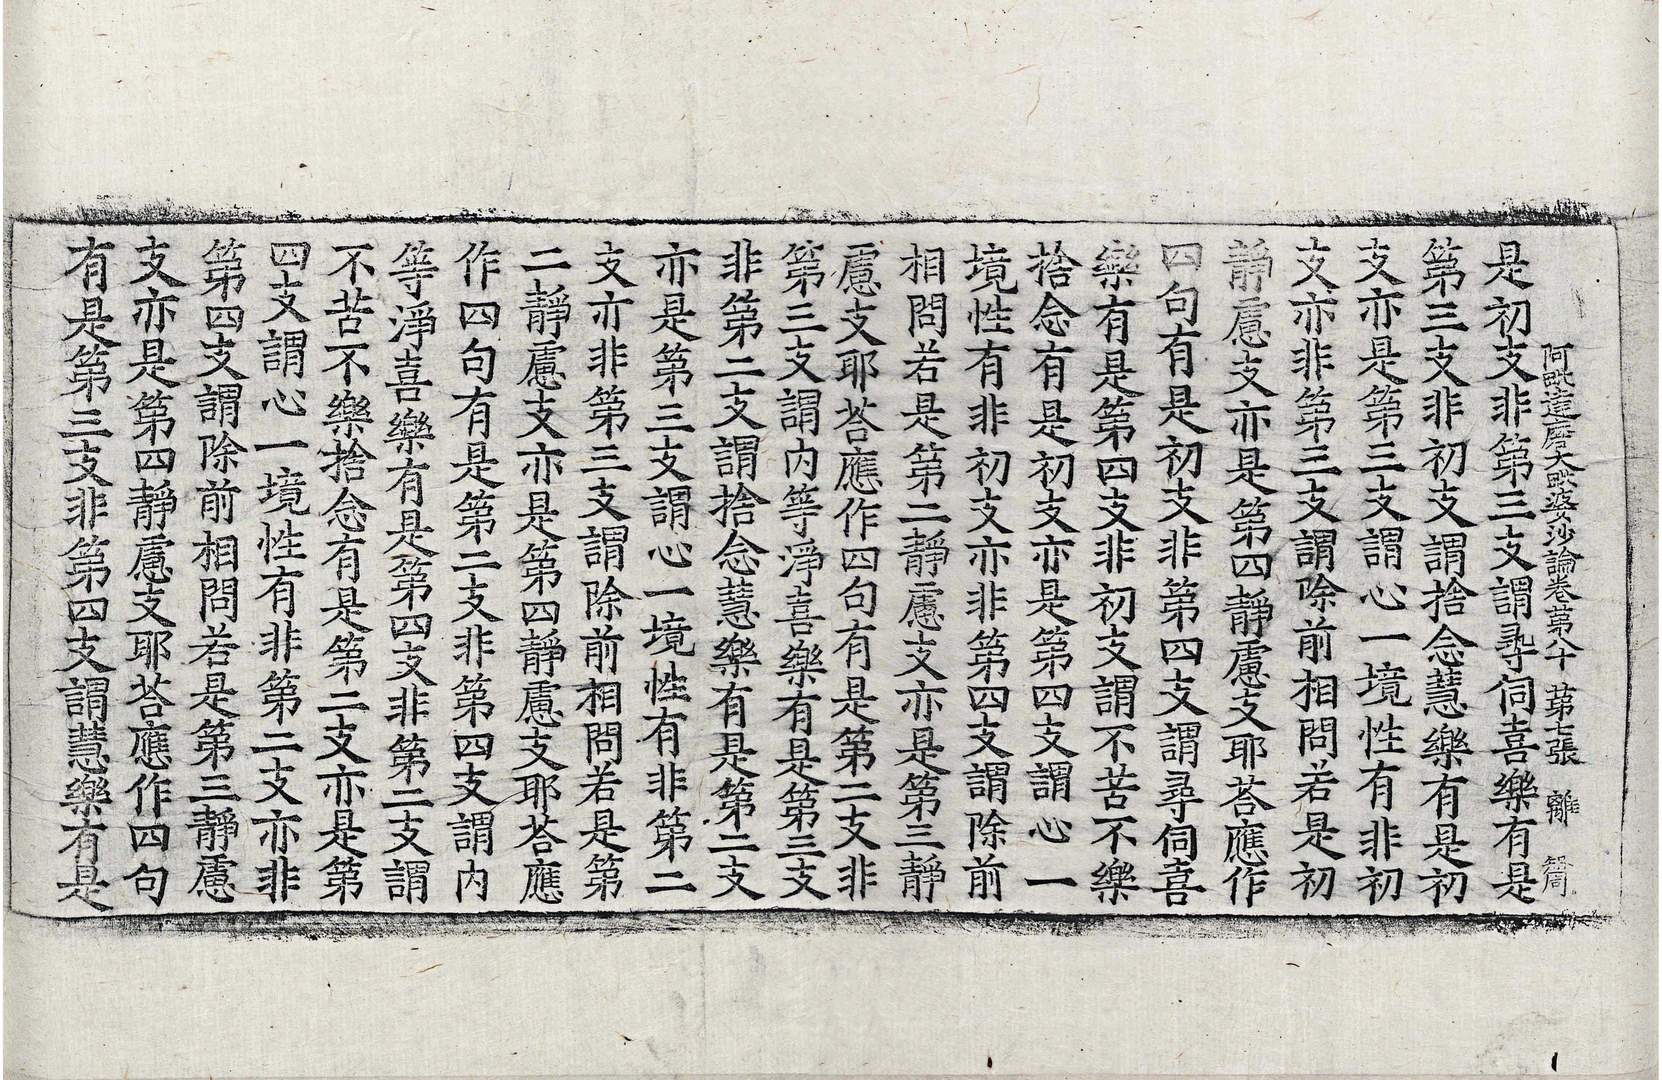 阿毗達磨大毗婆沙論卷第八十 第七張 離
是初支非第三支謂尋伺喜樂有是
第三支非初支謂捨念慧樂有是初
支亦是第三支謂心一境性有非初
支亦非第三支謂除前相問若是初
靜慮支亦是第四靜慮支耶荅應作
四句有是初支非第四支謂尋伺喜
樂有是第四支非初支謂不苦不樂
捨念有是初支亦是第四支謂心一
境性有非初支亦非第四支謂除前
相問若是第二靜慮支亦是第三靜
慮支耶荅應作四句有是第二支非
第三支謂内等淨喜樂有是第三支
非第二支謂捨念慧樂有是第二支
亦是第三支謂心一境性有非第二
支亦非第三支謂除前相問若是第
二靜慮支亦是第四靜慮支耶荅應
作四句有是第二支非第四支謂内
等淨喜樂有是第四支非第二支謂
不苦不樂捨念有是第二支亦是第
四支謂心一境性有非第二支亦非
第四支謂除前相問若是第三靜慮
支亦是第四靜慮支耶荅應作四句
有是第三支非第四支謂慧樂有是